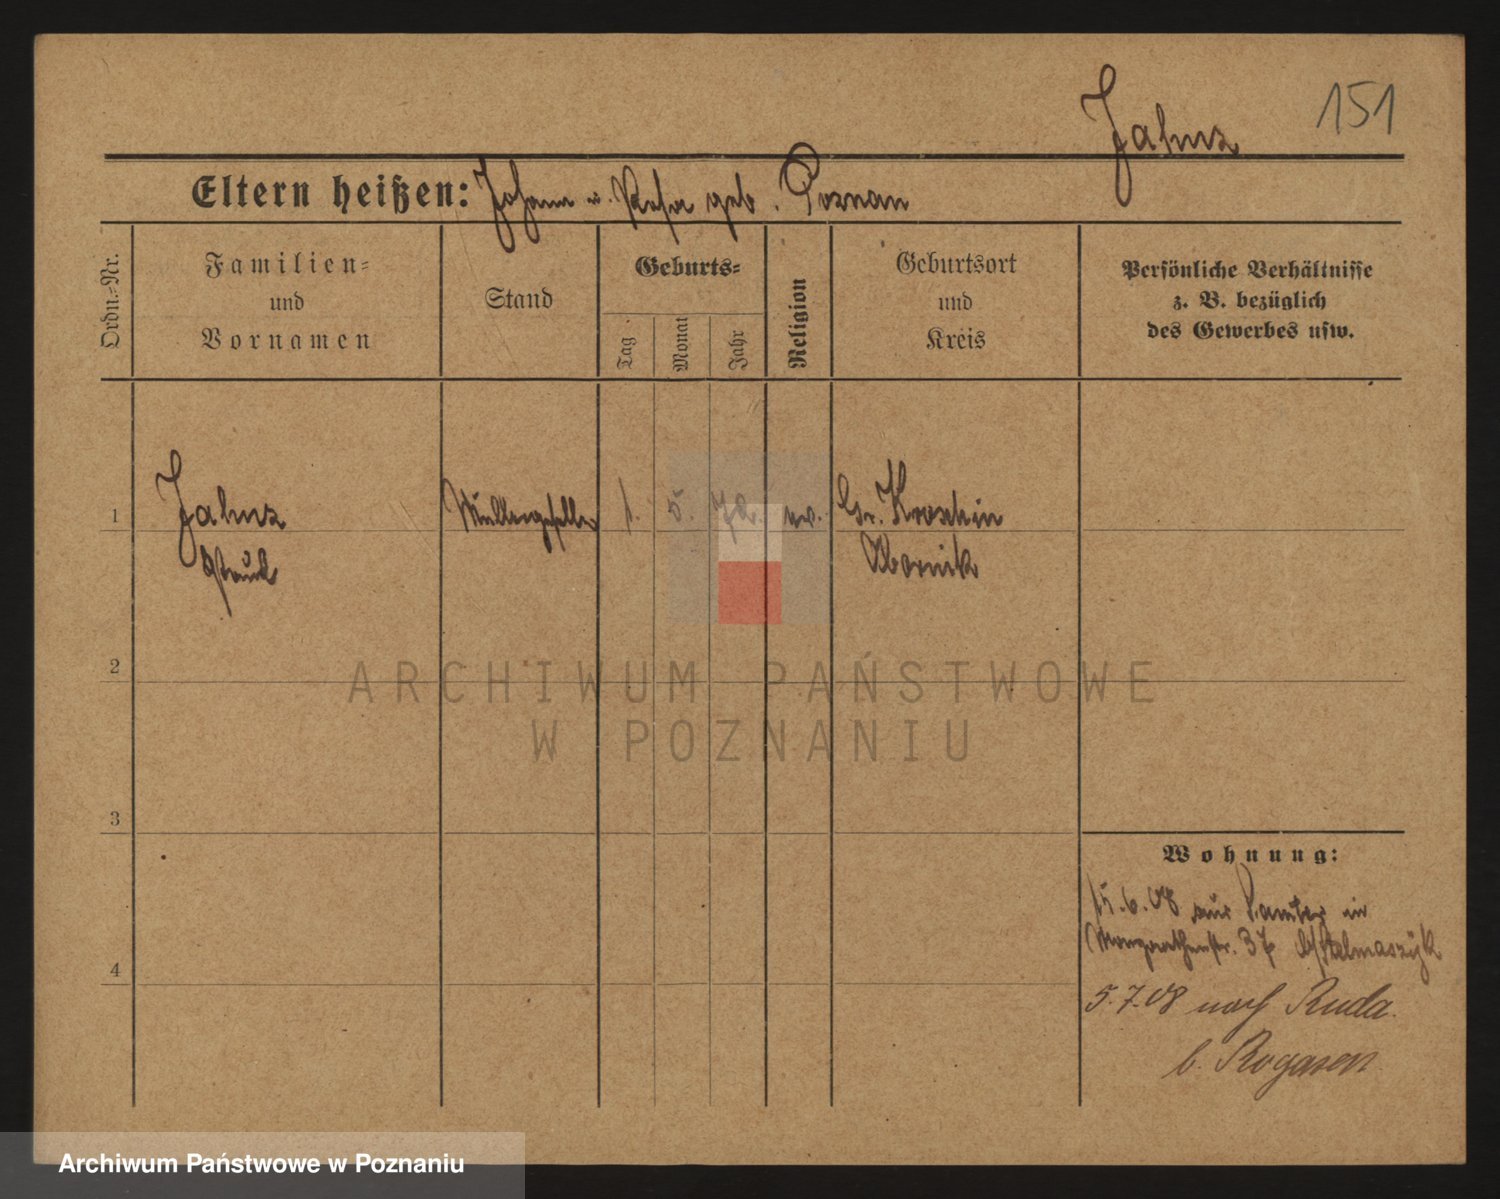 Jahnz 151
Eltern heißen: Johann u. Rosa geb. Poznan
Ordn.-Nr.
Familien-
und
Vornamen
Stand
Geburts-
Tag
Monat
Jahr
Religion
Geburtsort
und
Kreis
Persönliche Verhältnisse
z. B. bezüglich
des Gewerbes usw.
1
Jahnz
Müllergeselle
1. 5.
Gr. Kroschin
Obornik
2
ARCHIWUM PAŃSTWOWE
W POZNANIU
3
Wohnung:
15.6.08 aus Samter in
Margarethenstr. 37
4
5.7.08 nach Ruda
b. Rogasen
Archiwum Państwowe w Poznaniu